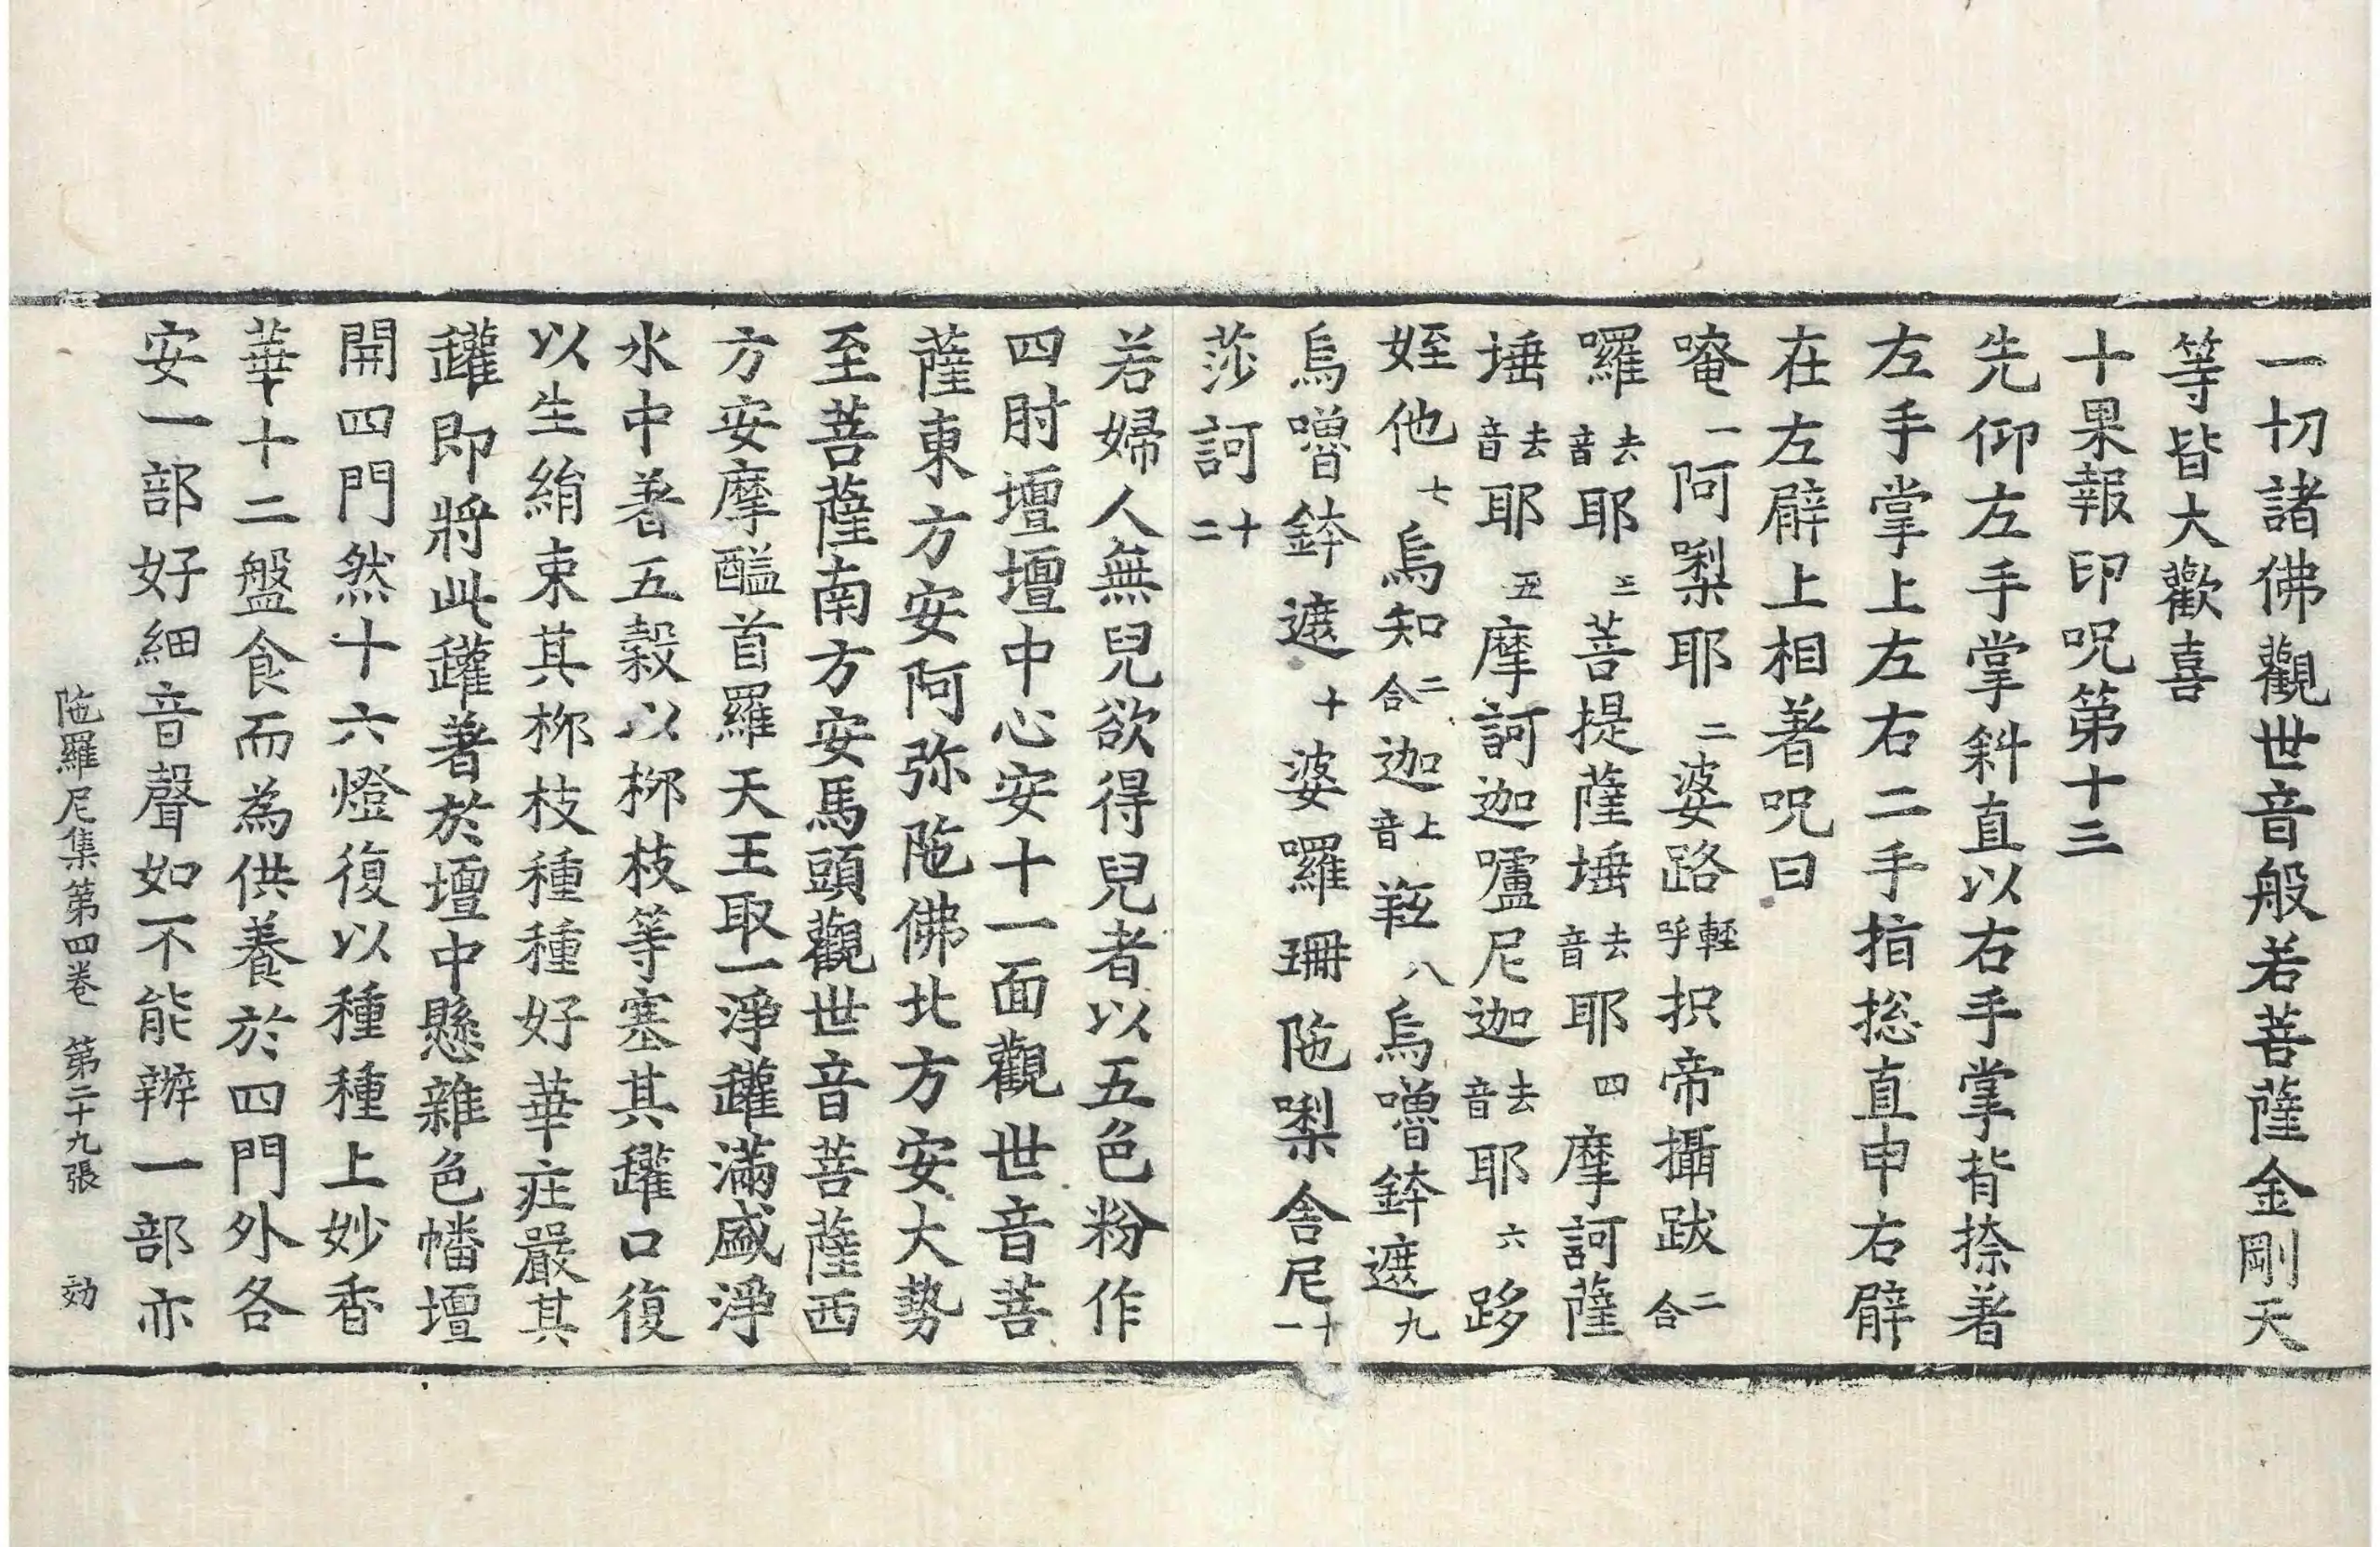 一切諸佛觀世音般若菩薩金剛天
等皆大歡喜
十果報印呪第十三
先仰左手掌斜直以右手掌背捺著
左手掌上左右二手指捴直申右臂
在左臂上相著呪曰
唵一阿唎耶二婆路輕呼抧帝攝跋二合
囉去音耶三菩提薩埵去音耶四摩訶薩
埵去音耶五摩訶迦嚧尼迦去音耶六跢
姪他七烏知二合迦上音㲲八烏嚕鉢遮九
烏嚕鉢遮十婆囉珊陁唎舍尼十一
莎訶十二
若婦人無兒欲得兒者以五色粉作
四肘壇壇中心安十一面觀世音菩
薩東方安阿弥陁佛北方安大勢
至菩薩南方安馬頭觀世音菩薩西
方安摩醯首羅天王取一淨罐滿盛淨
水中著五穀以栁枝等塞其罐口復
以生絹束其栁枝種種好華庄嚴其
罐即將此罐著於壇中懸雜色幡壇
開四門然十六燈復以種種上妙香
華十二盤食而為供養於四門外各
安一部好細音聲如不能辦一部亦
陁羅尼集第四卷 第二十九張 効